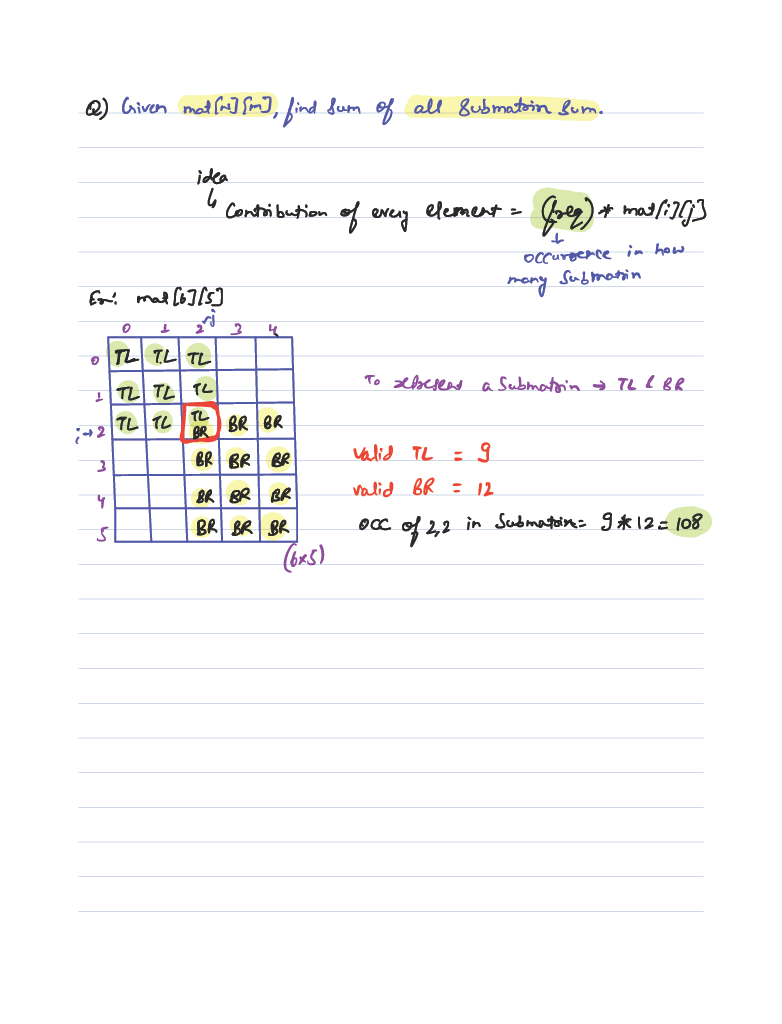 Q) Given mat[N][M], find Sum of all Submatrix Sum.
idea
↳ Contribution of every element = (freq) * mat[i][j]
↓
occurrence in how
many Submatrix
Ex: mat[6][5]
↙j
0 1 2 3 4
0 TL TL TL
1 TL TL TL
i→2 TL TL TL BR BR BR
3 BR BR BR
4 BR BR BR
5 BR BR BR
(6x5)
To represent a Submatrix → TL & BR
valid TL = 9
valid BR = 12
occ of 2,2 in Submatrix = 9 * 12 = 108